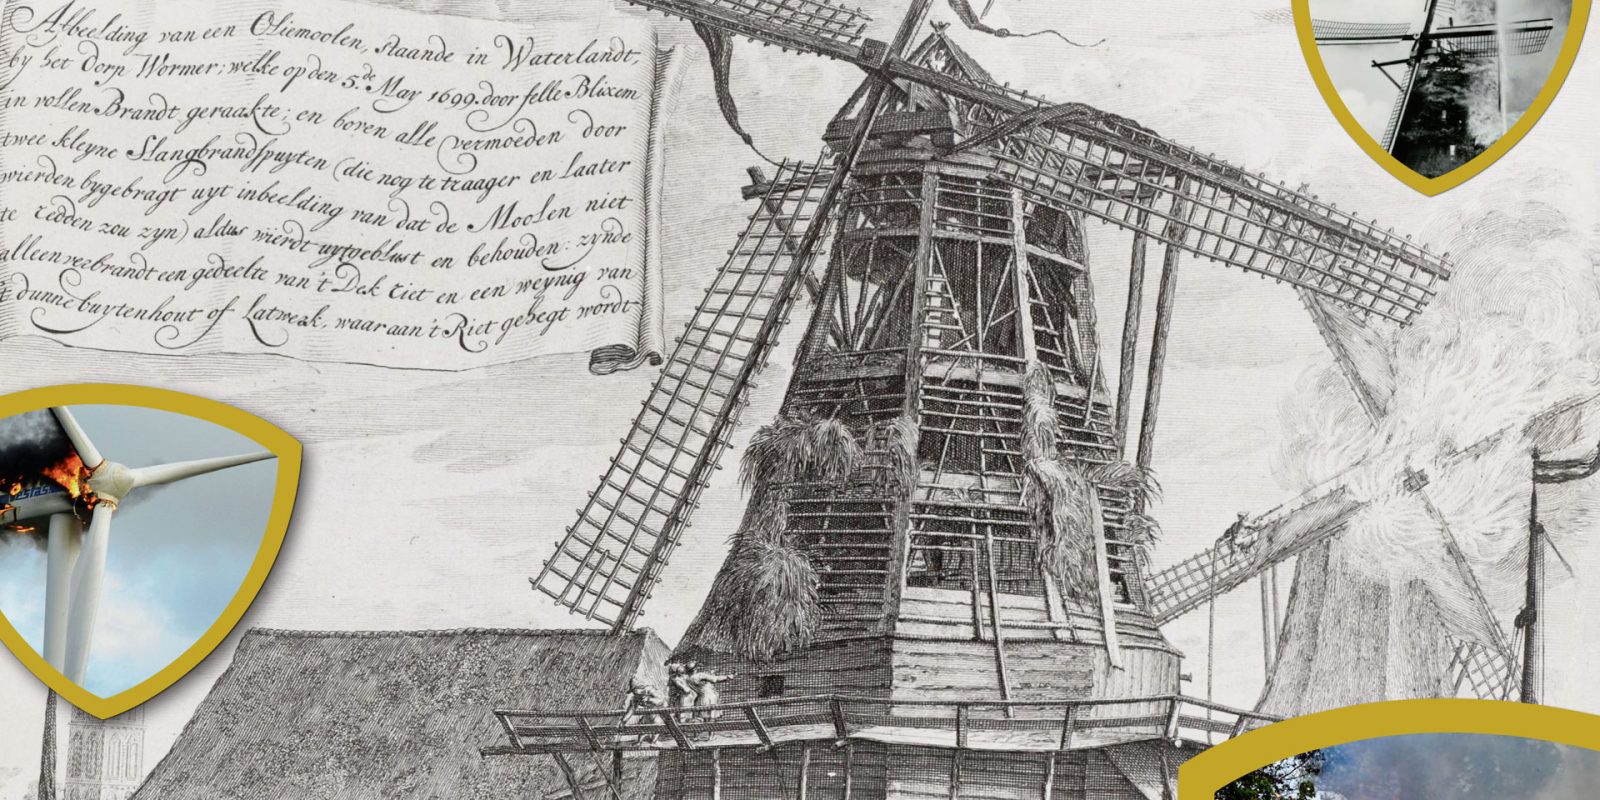 Afbeelding van een Oliemoolen, staande in Waterlandt,
by het dorp Wormer; welke op den 5.de May 1699. door felle Blixem
in vollen Brandt geraakte; en boven alle vermoeden door
twee kleyne Slangbrandspuyten (die nog te traager en laater
wierden bygebragt uyt inbeelding van dat de Moolen niet
te redden zou zyn) aldus wierdt uytgeblust en behouden: zynde
alleen verbrandt een gedeelte van 't Dek riet en een weynig van
't dunne buytenhout of Latwerk, waar aan 't Riet gehegt wordt
Vestas